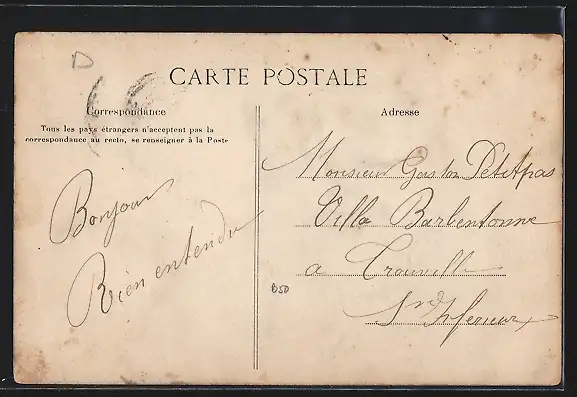 D
CARTE POSTALE
Correspondance
Tous les pays étrangers n'acceptent pas la
correspondance au recto, se renseigner à la Poste
Bonjour
Bien entendu
Adresse
Monsieur Gaston Petitpas
Villa Barbentonne
a Trouville
Inférieur
B50